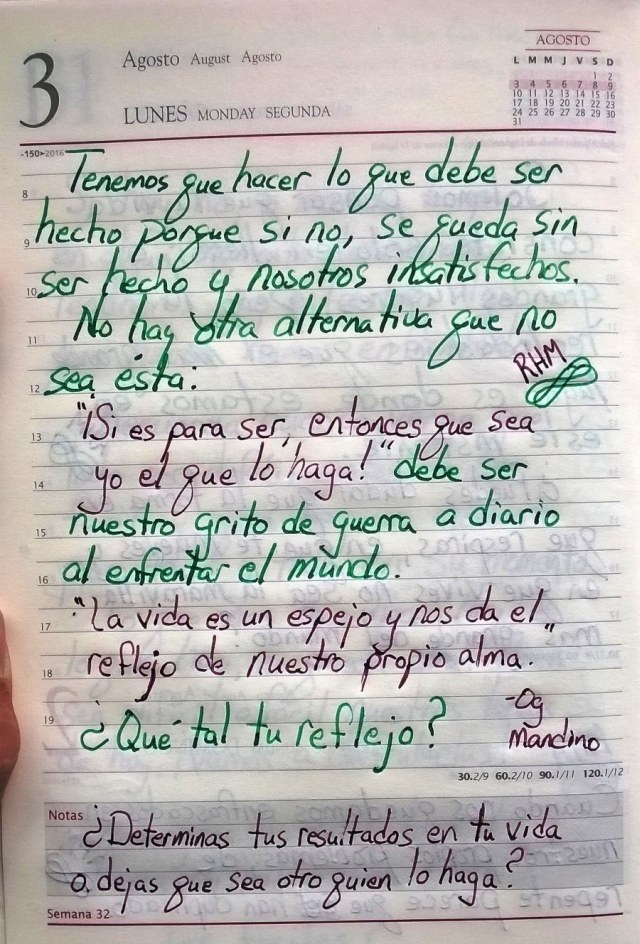 3
Agosto August Agosto
LUNES MONDAY SEGUNDA
AGOSTO
L M M J V S D
1 2
3 4 5 6 7 8 9
10 11 12 13 14 15 16
17 18 19 20 21 22 23
24 25 26 27 28 29 30
31
-150▸2016
8 Tenemos que hacer lo que debe ser
9 hecho porque si no, se queda sin
10 ser hecho y nosotros insatisfechos.
11 No hay otra alternativa que no
12 sea ésta:
RHM
13 "¡Si es para ser, entonces que sea
14 yo el que lo haga!" debe ser
15 nuestro grito de guerra a diario
16 al enfrentar el mundo.
17 "La vida es un espejo y nos da el
18 reflejo de nuestro propio alma."
19 ¿Qué tal tu reflejo?
-Og
Mandino
30.2/9 60.2/10 90.1/11 120.1/12
Notas ¿Determinas tus resultados en tu vida
o dejas que sea otro quien lo haga?
Semana 32